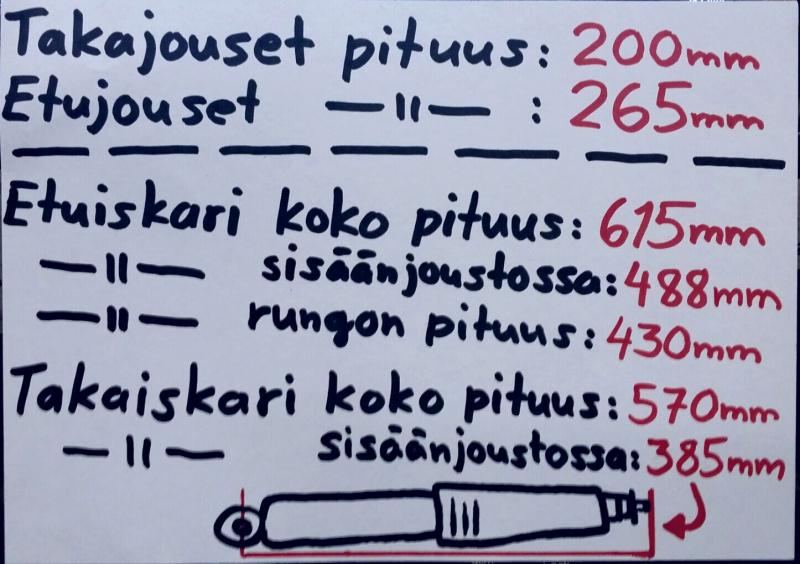 Takajouset pituus: 200mm
Etujouset —||— : 265mm
Etuiskari koko pituus: 615mm
—||— sisäänjoustossa: 488mm
—||— rungon pituus: 430mm
Takaiskari koko pituus: 570mm
—||— sisäänjoustossa: 385mm